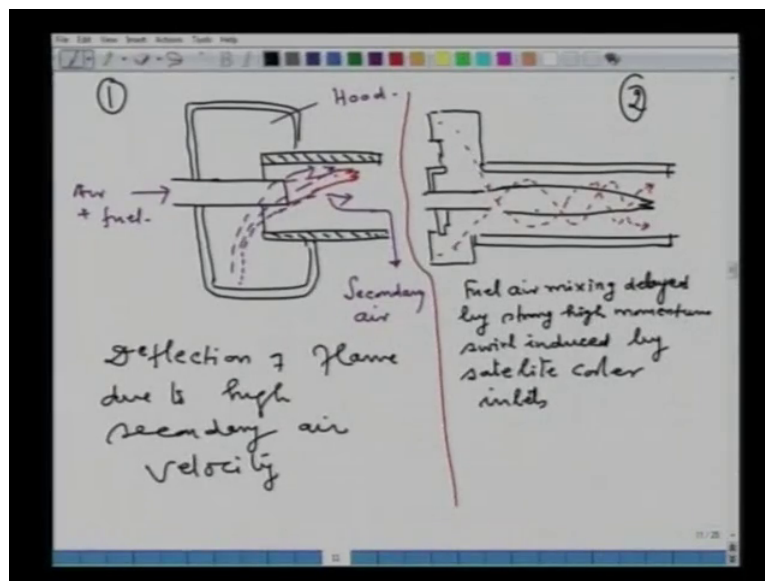 File Edit View Insert Actions Tools Help
①
Hood.
②
Air
+ fuel.
Secondary
air
Deflection of Flame
due to high
secondary air
velocity
Fuel air mixing delayed
by strong high momentum
swirl induced by
satelite cooler
inlets
11/25